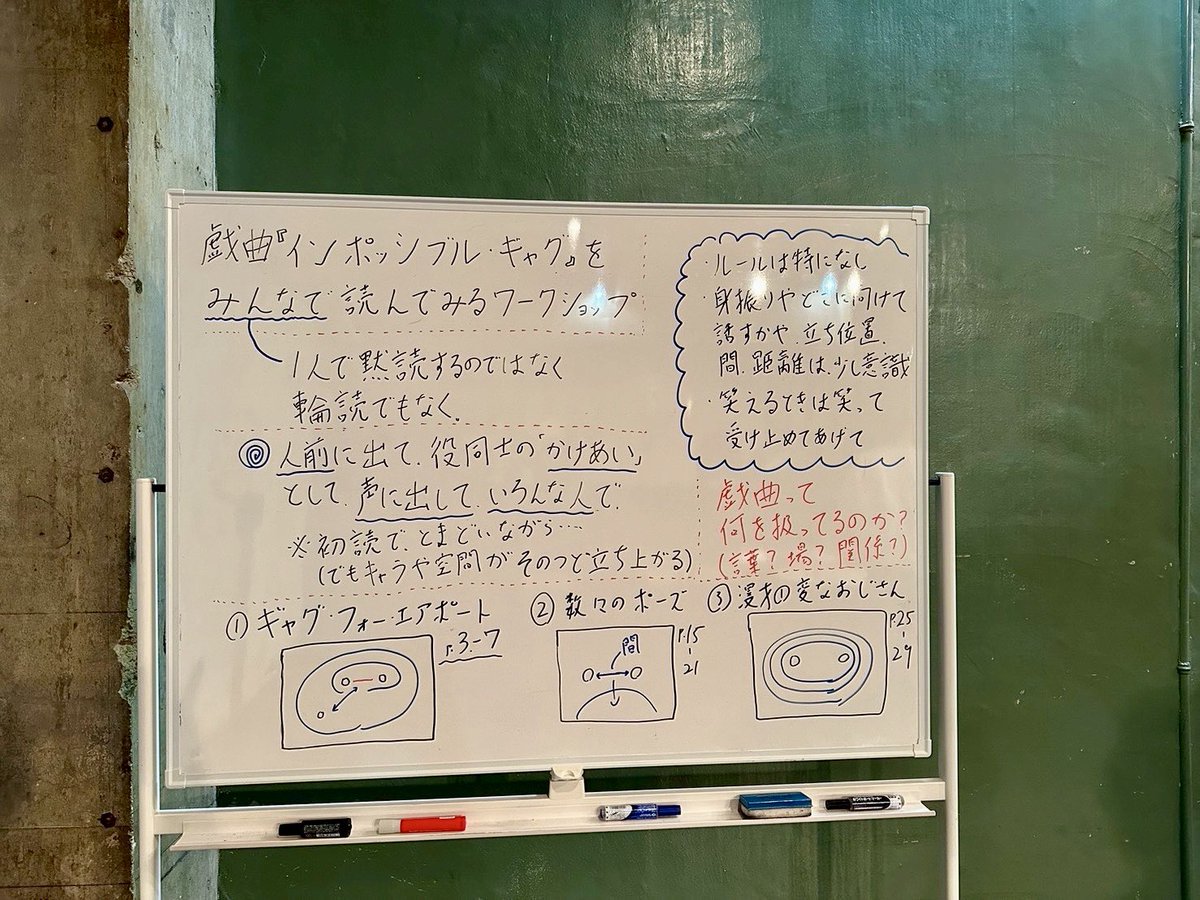 戯曲『インポッシブル・ギャグ』を
みんなで読んでみるワークショップ
1人で黙読するのではなく
輪読でもなく、
◎人前に出て、役同士の「かけあい」
として、声に出して、いろんな人で、
※初読で、とまどいながら……
(でもキャラや空間がそのつど立ち上がる)
・ルールは特になし
・身振りやどこに向けて
話すかや、立ち位置、
間、距離は、少し意識
・笑えるときは笑って
受け止めてあげて
戯曲って
何を扱ってるのか?
(言葉?場?関係?)
① ギャグ・フォー・エアポート
p.3-7
② 数々のポーズ
間
p.15
-
21
③ 漫才① 変なおじさん
p.25
-
29